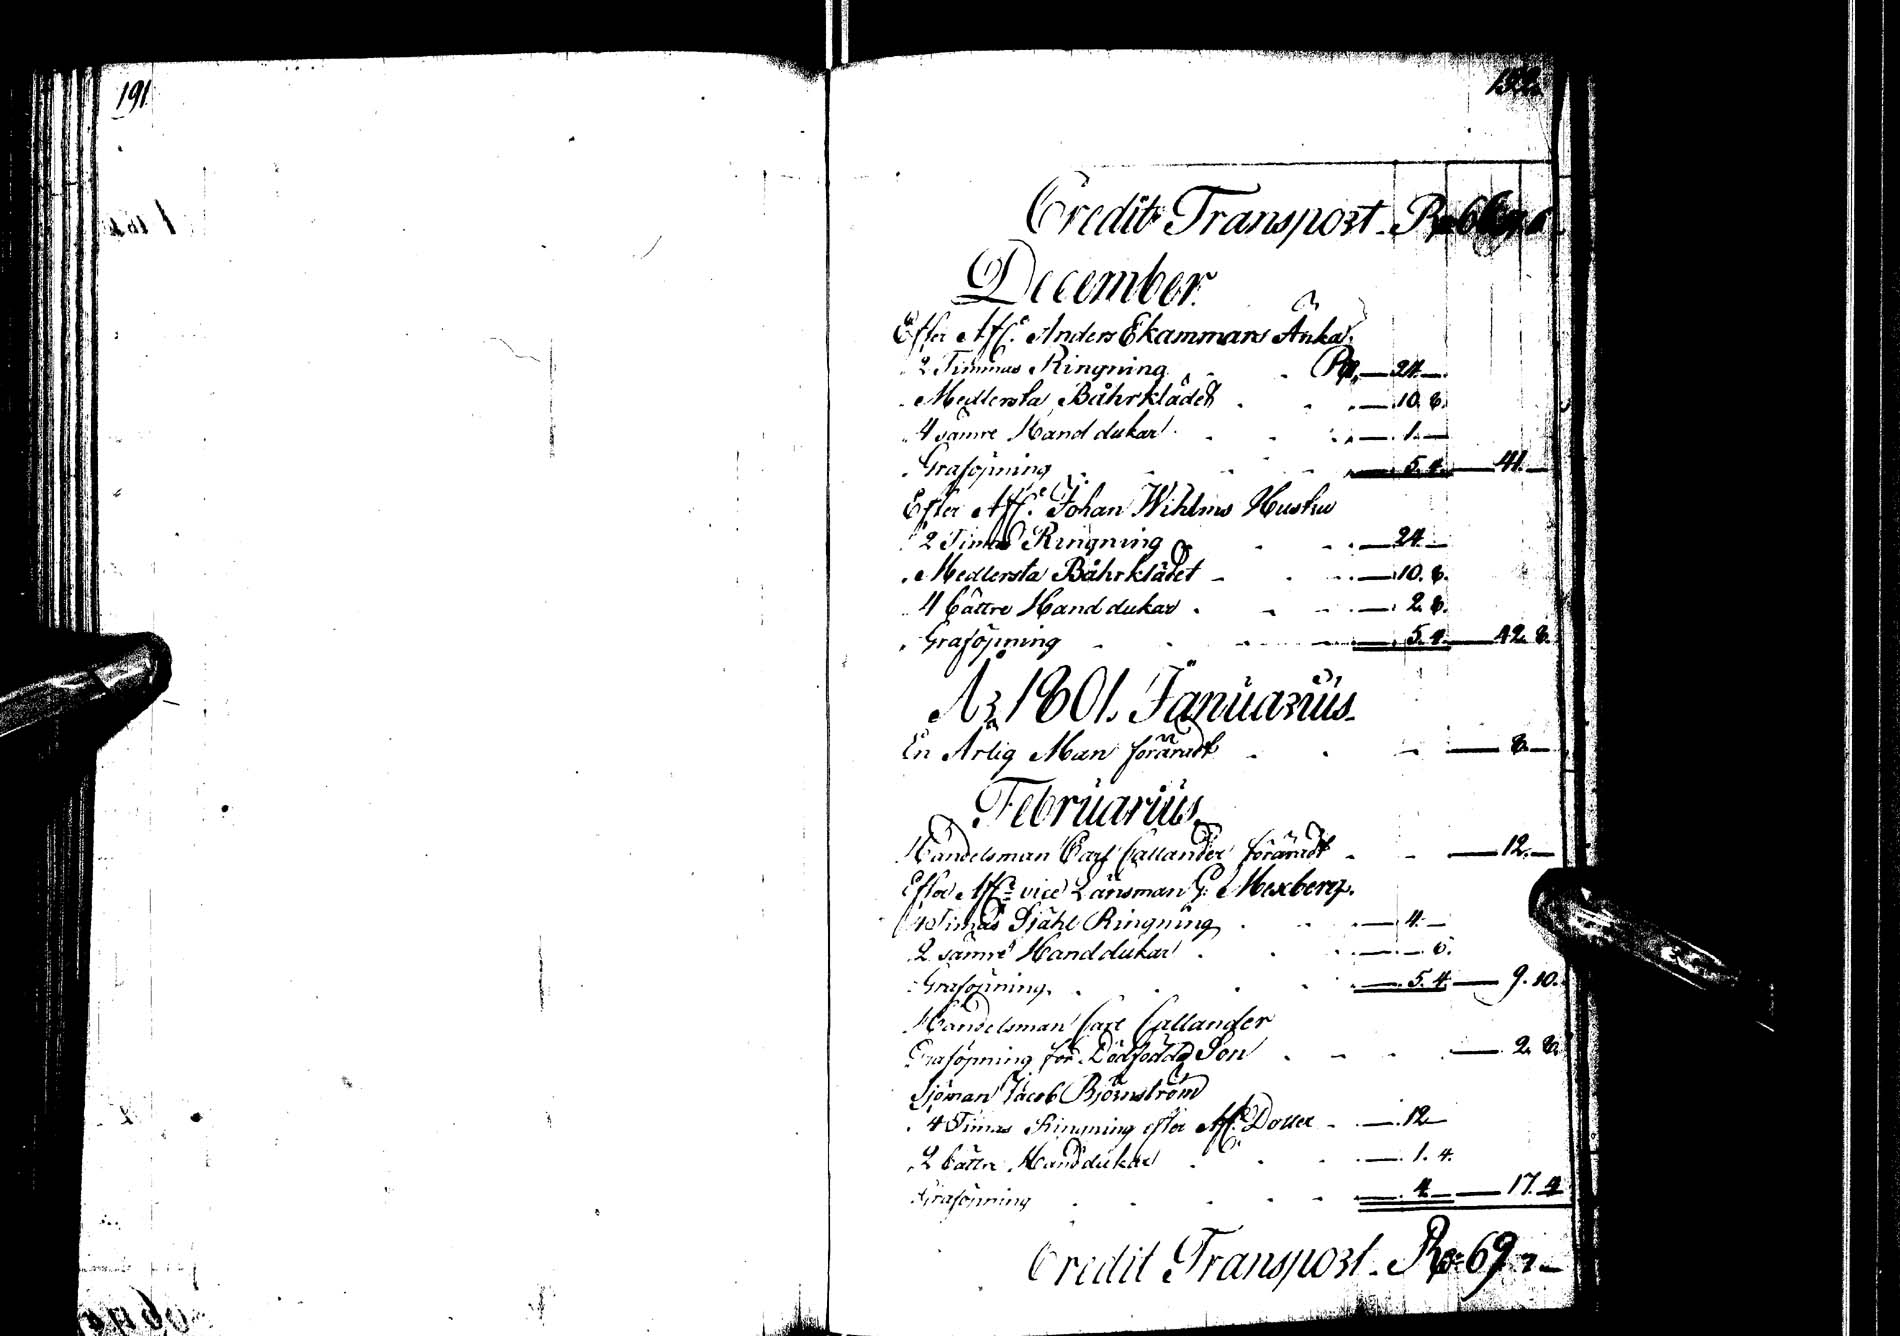 191
192.
Credit Transport. Rd
December.
Efter Afl. Anders Ekammars Änka.
2 Timmas Ringning Rd — 24. —
Medlersta Båhrklädet — 10. 8.
4 sämre Handdukar — 1. —
Graföpning — 5. 4. — 41. —
Efter Afl. Johan Wihlms Hustru
2 Timas Ringning — 24 —
Medlersta Båhrklädet — 10. 8.
4 bättre Handdukar — 2. 8.
Graföpning — 5. 4. — 42. 8.
År 1801. Januarius.
En Ärlig Man föräradt — 8. —
Februarius.
Handelsman Carl Callander föräradt — 12. —
Efter Afl. vice Länsman G. Mexberg.
4 Timas Själ Ringning — 4. —
2 sämre Handdukar — 6.
Graföpning — 5. 4. — 9. 10.
Handelsman Carl Callander
Graföpning för Dödfödd Son — 2. 8.
Sjöman Jacob Björnström
4 Timas Ringning efter Afl. Dotter — 12 —
2 bättre Handdukar — 1. 4.
Graföpning — 4 — 17. 4
Credit Transport. Rd 69. 7 —